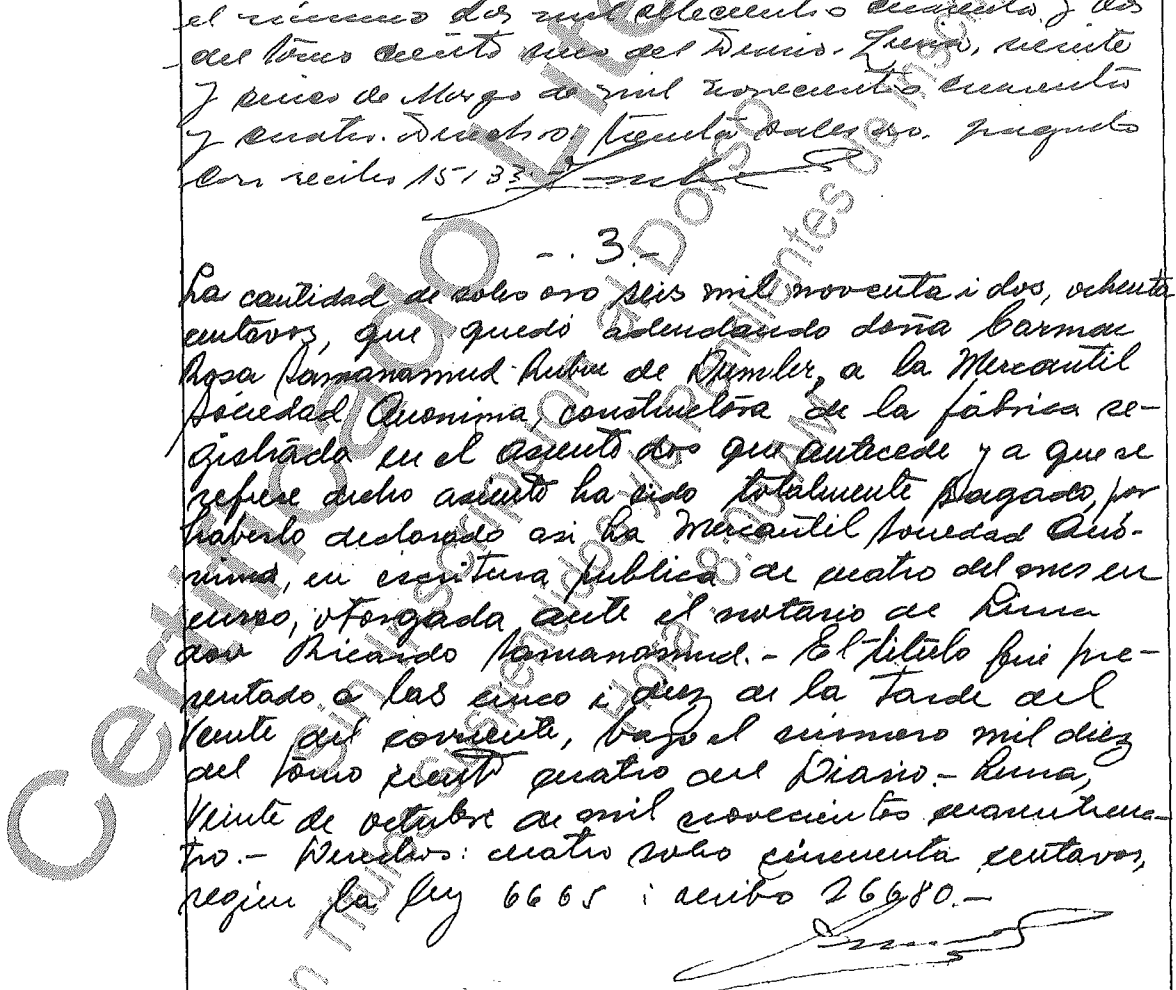 el número dos mil setecientos cuarenta y dos
del tomo ciento uno del Diario. Lima, veinte
y cinco de Marzo de mil novecientos cuarenta
y cuatro. Derechos, treinta soles oro. pagado
con recibo 15133
-. 3.-
La cantidad de soles oro seis mil noventa i dos, ochenta
centavos, que quedó adeudando doña Carmen
Rosa Samanamud Rubio de Dumler, a la Mercantil
Sociedad Anonima, constructora de la fábrica re-
gistrada en el asiento dos que antecede y a que se
refiere dicho asiento ha sido totalmente pagado, por
haberlo declarado asi La Mercantil Sociedad Anó-
nima, en escritura publica de cuatro del mes en
curso, otorgada ante el notario de Lima
don Ricardo Samanamud.- El título fué pre-
sentado a las cinco i diez de la tarde del
veinte del corriente, bajo el número mil diez
del tomo ciento cuatro del Diario.- Lima,
Veinte de octubre de mil novecientos cuarenticua-
tro.- Derechos: cuatro soles cincuenta centavos,
según la ley 6665 i recibo 26680.-
Certificado
Sin Inscripción al Dorso